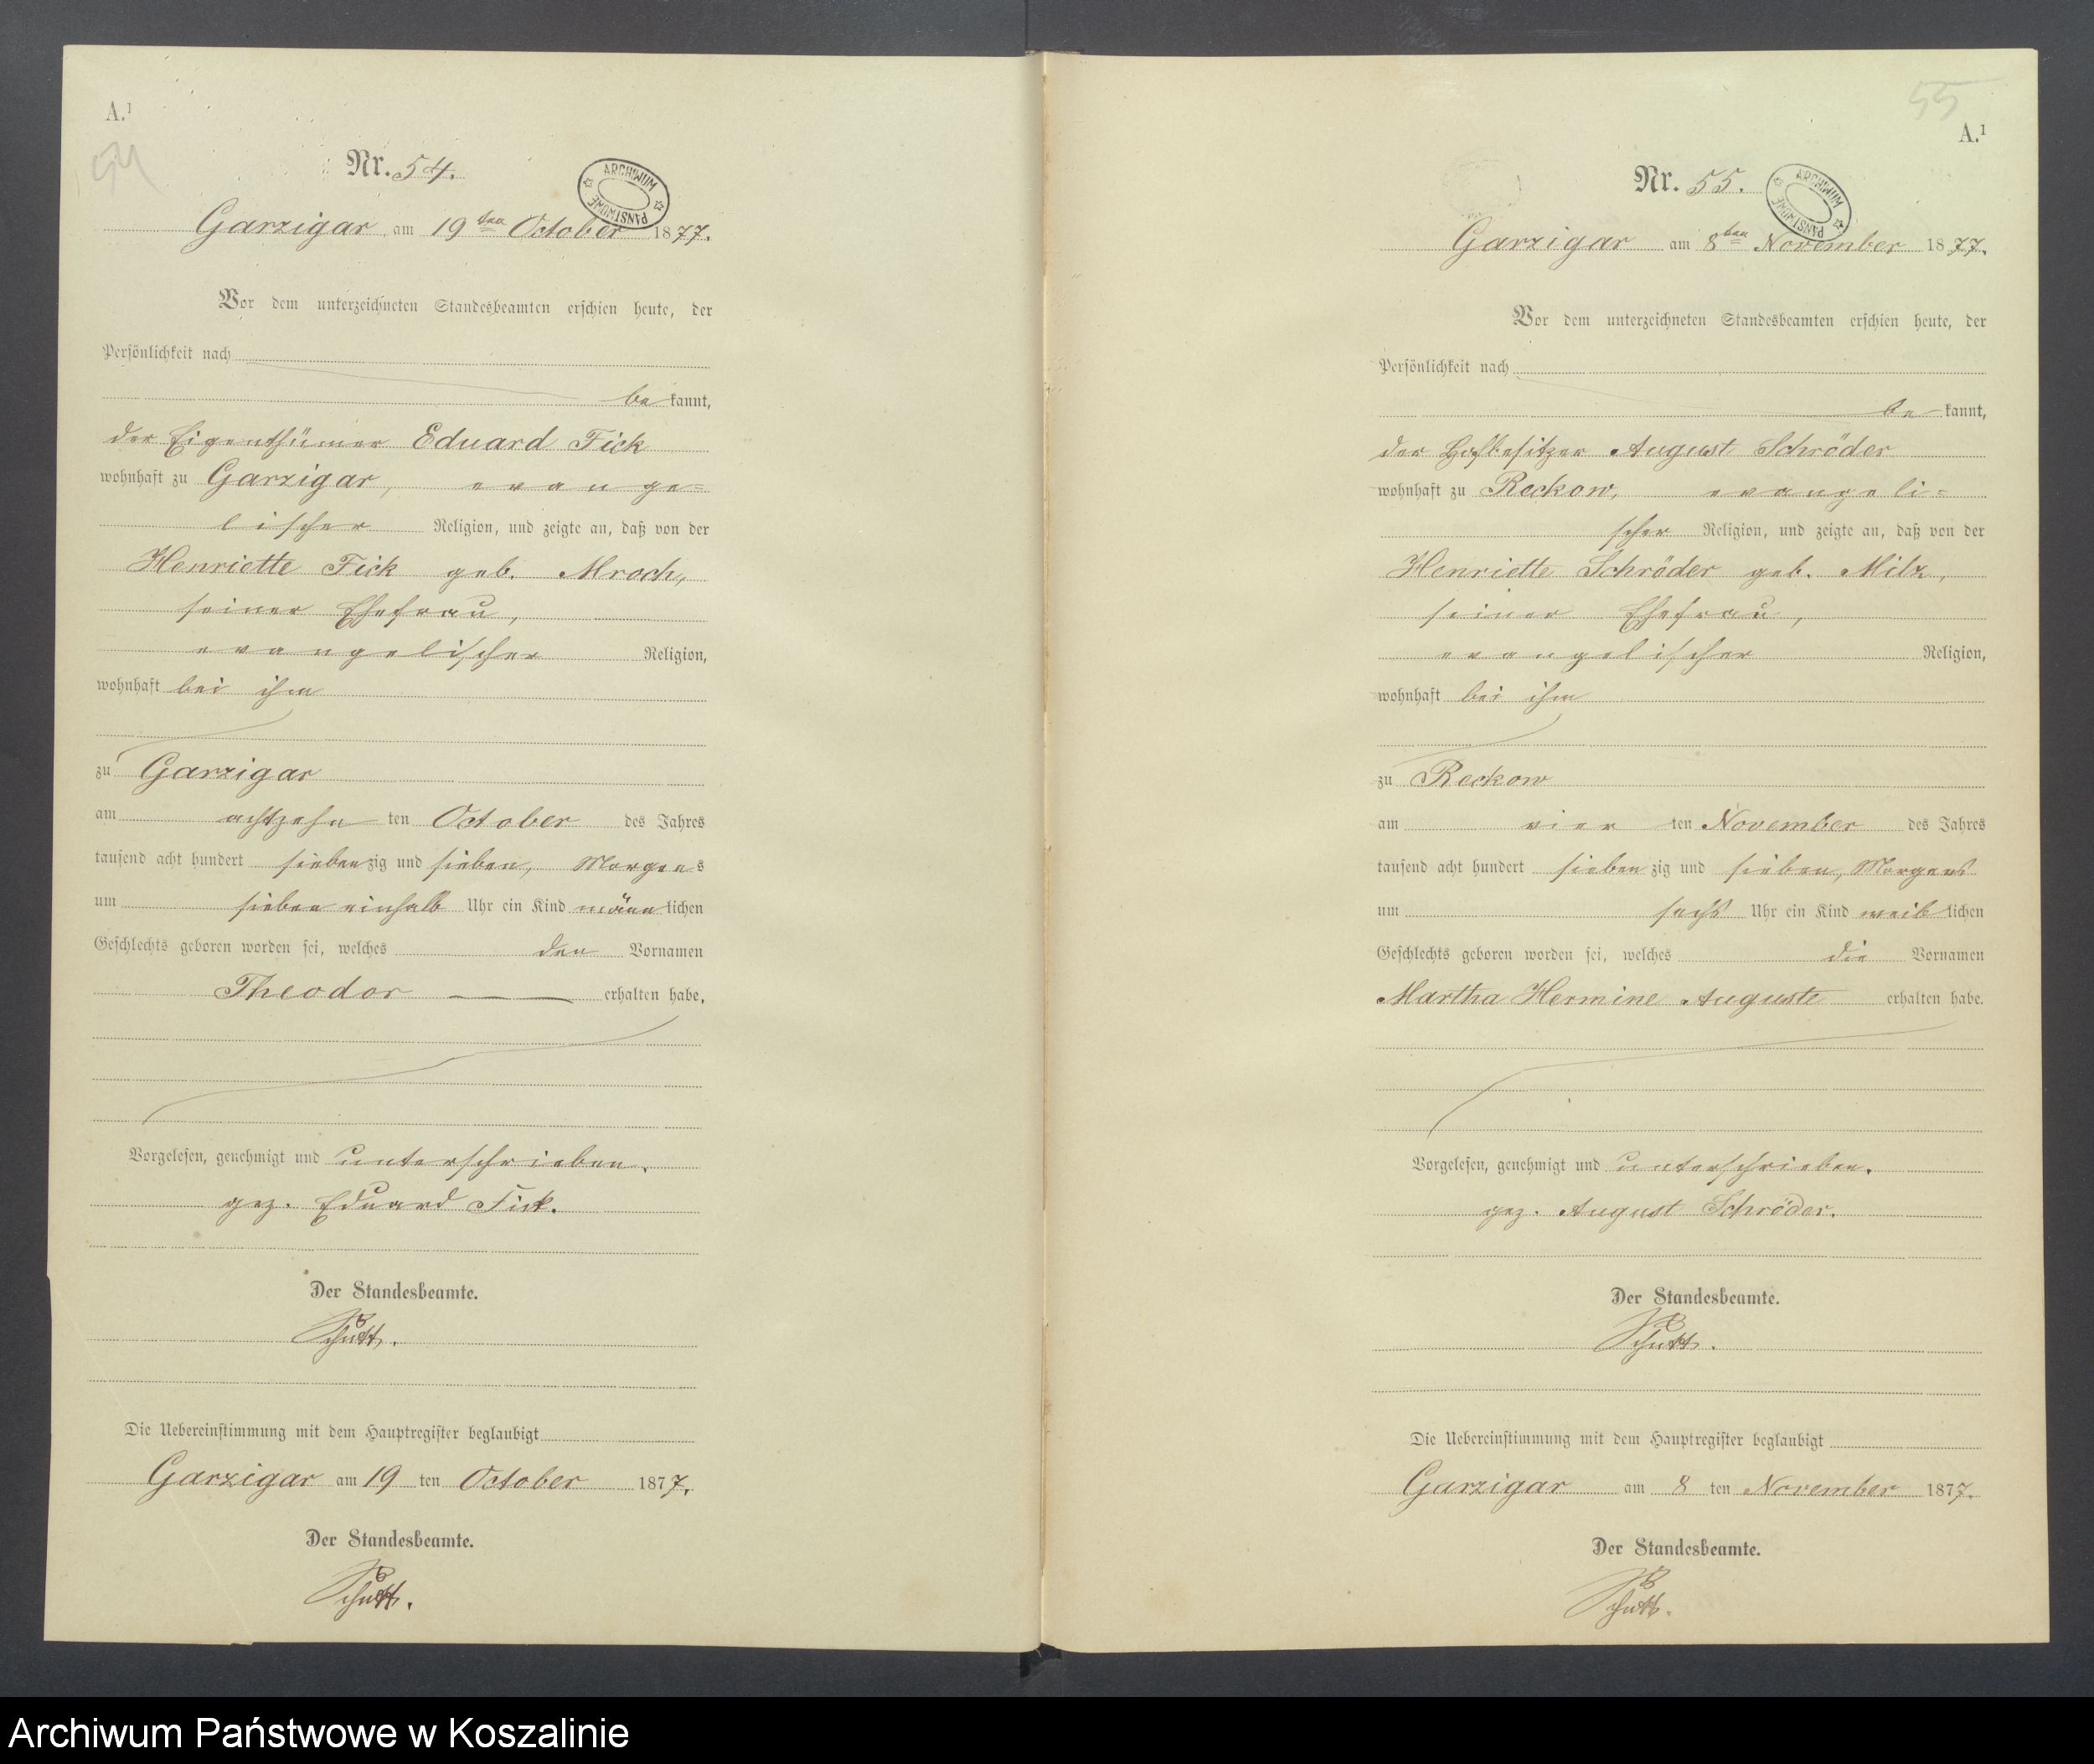 A.¹
54
Nr. 54.
ARCHIWUM PAŃSTWOWE
Garzigar am 19ten October 1877.
Vor dem unterzeichneten Standesbeamten erschien heute, der
Persönlichkeit nach
bekannt,
der Eigenthümer Eduard Fick
wohnhaft zu Garzigar, evange=
lischer Religion, und zeigte an, daß von der
Henriette Fick geb. Mroch,
seiner Ehefrau,
evangelischer Religion,
wohnhaft bei ihm
zu Garzigar
am achtzehn ten October des Jahres
tausend acht hundert siebenzig und sieben, Morgens
um sieben einhalb Uhr ein Kind männlichen
Geschlechts geboren worden sei, welches den Vornamen
Theodor erhalten habe.
Vorgelesen, genehmigt und unterschrieben.
gez. Eduard Fick.
Der Standesbeamte.
Die Uebereinstimmung mit dem Hauptregister beglaubigt
Garzigar am 19 ten October 1877.
Der Standesbeamte.
55
A.¹
Nr. 55.
ARCHIWUM PAŃSTWOWE
Garzigar am 8ten November 1877.
Vor dem unterzeichneten Standesbeamten erschien heute, der
Persönlichkeit nach
bekannt,
der Hofbesitzer August Schröder
wohnhaft zu Reckow, evangeli=
scher Religion, und zeigte an, daß von der
Henriette Schröder geb. Milz,
seiner Ehefrau,
evangelischer Religion,
wohnhaft bei ihm
zu Reckow
am vier ten November des Jahres
tausend acht hundert siebenzig und sieben, Morgens
um sechs Uhr ein Kind weiblichen
Geschlechts geboren worden sei, welches die Vornamen
Martha Hermine Auguste erhalten habe.
Vorgelesen, genehmigt und unterschrieben.
gez. August Schröder.
Der Standesbeamte.
Die Uebereinstimmung mit dem Hauptregister beglaubigt
Garzigar am 8 ten November 1877.
Der Standesbeamte.
Archiwum Państwowe w Koszalinie